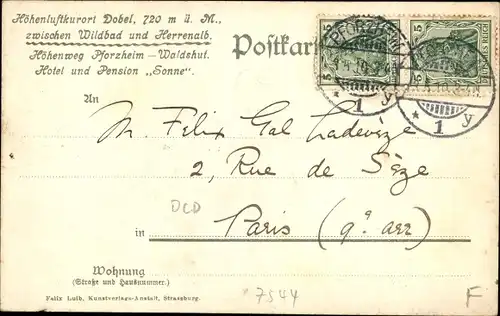 Höhenluftkurort Dobel, 720 m ü. M.,
zwischen Wildbad und Herrenalb.
Höhenweg Pforzheim — Waldshut.
Hotel und Pension „Sonne".
Postkarte
5 5
5 5
PFORZHEIM
* 1 y
* 1 y
DEUTSCHES REICH
An
M. Felix Gal Ladevèze
2, Rue de Sèze
DCD
in Paris (9e arr)
Wohnung
(Straße und Hausnummer.)
7544
F
Felix Luib, Kunstverlags-Anstalt, Strassburg.